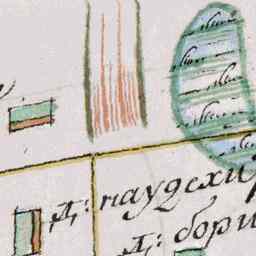 Д: паудехи
Д: бори